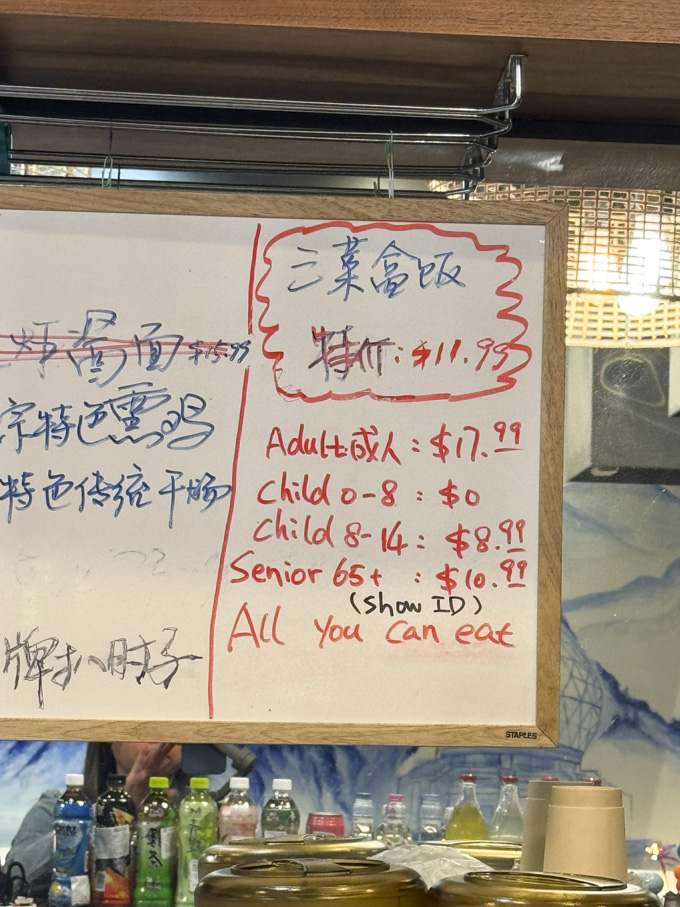 湯面 $15.99
宗特色熏鸡
特色传统干肠
牌扒肘子
三菜盒饭
特价: $11.99
Adult成人: $17.99
Child 0-8 : $0
Child 8-14: $8.99
Senior 65+ : $10.99
(Show ID)
All you can eat
STAPLES